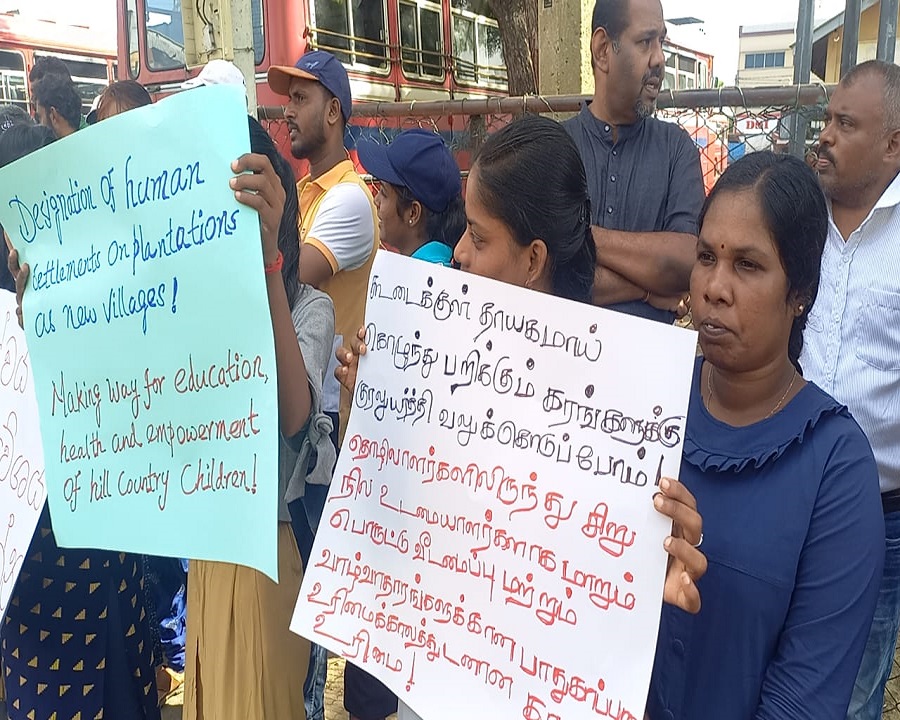 Designation of human
settlements on plantations
as new villages!
Making way for education,
health and empowerment
of hill Country Children!
கூடைக்குள் தாயகமாய்
கொழுந்து பறிக்கும் கரங்களுக்கு
குரலுயர்த்தி வலுக்கொடுப்போம்!
தொழிலாளர்களிலிருந்து சிறு
நில உடமையாளர்களாக மாறும்
பொருட்டு வீடமைப்பு மற்றும்
வாழ்வாதாரங்களுக்கான பாதுகாப்பான
உரிமைக்காலத்துடனான
உரிமை!